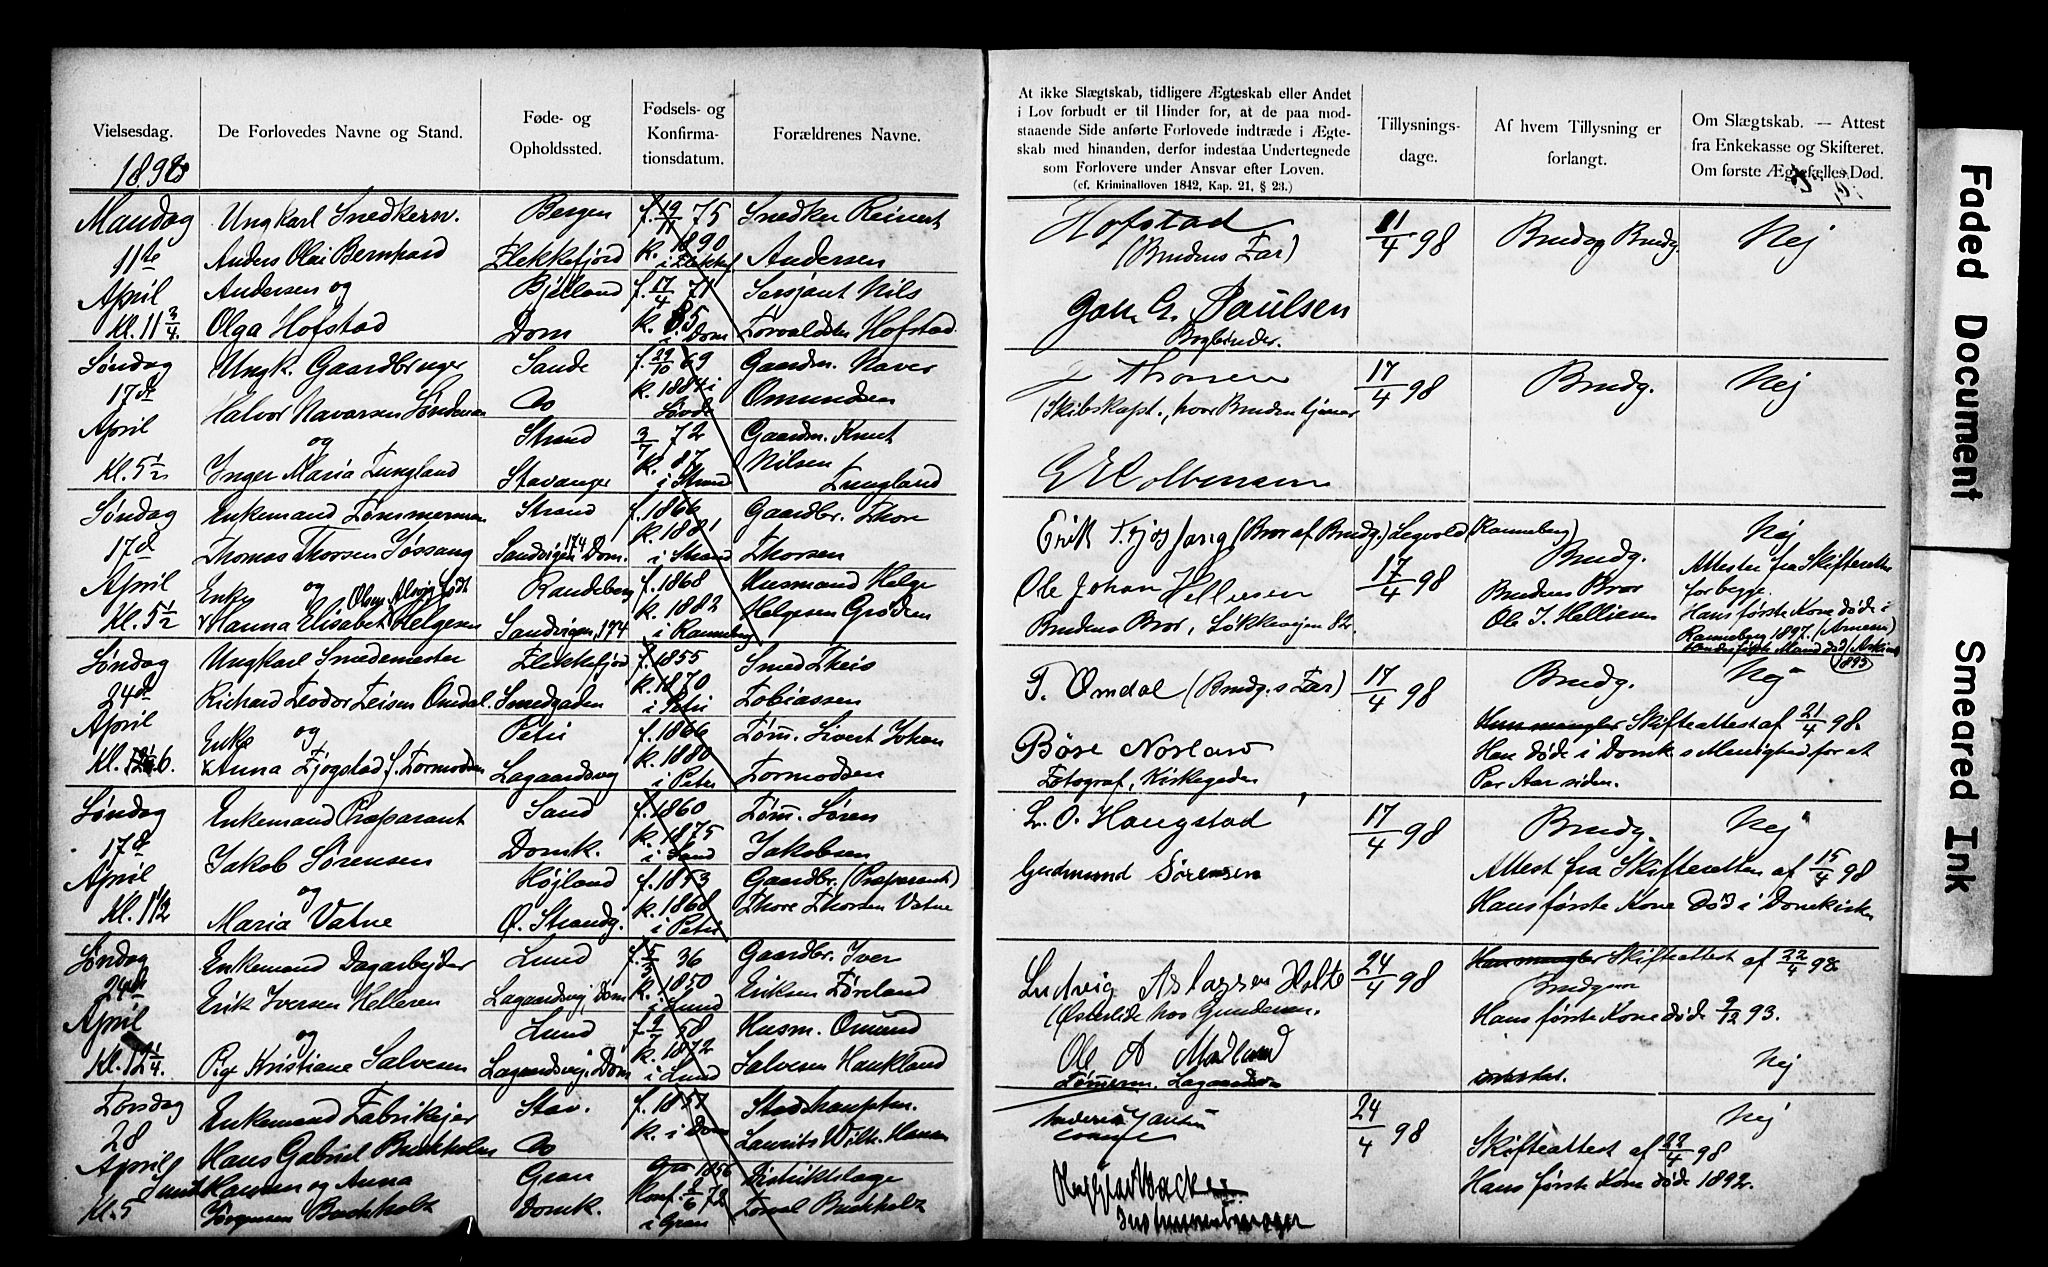 Vielsesdag.
1898
De Forlovedes Navne og Stand.
Føde- og
Opholdssted.
Fødsels- og
Konfirma-
tionsdatum.
Forældrenes Navne.
Mandag
11te
April
Kl. 11 3/4.
Ungkarl Snedkersv.
Anders Olai Bernhard
Andersen og
Olga Hofstad
Bergen
Flekkefjord
Bjelland
Dom
f. 19/11 75
k. 1890
i Flekkef
f. 17/4 71
k. 85
i Dom
Snedker Reinert
Andersen
Sersjant Nils
Torvaldsen Hofstad
Søndag
17de
April
Kl. 5 1/2
Ungk. Gaardbruger
Halvor Navarsen
og
Inger Maria Tungland
Sande
Do
Strand
Stavanger
f. 29/10 69
k. 1884 i
3/7 72
k. 87
i Strand
Gaardm. Naver
Omundsen
Gaardm. Knut
Nilsen
Tungland
Søndag
17de
April
Kl. 5 1/2
Enkemand Tømmermand
Thomas Thorsen Jøssang
Enke og Olene Alvig født
Hanna Elisabet Helgesen
Strand
Sandvigen 174 Dom.
Randeberg
Sandvigen, 174
f. 1866
k. 1881
i Strand
f. 1868
k. 1882
i Ranneberg
Gaardbr. Thore
Thorsen
Husmand Helge
Helgesen Grødem
Søndag
24de
April
Kl. 6.
Ungkarl Smedemester
Richard Teodor Teisen Omdal.
Enke og
Anna Fjogstad f. Tormodsen
Flekkefjord
Smedgaden
Petri
Lagaardsvej
f. 1855
k. 1870
i Petri
f. 1866
k. 1880
i Petri
Smed Theis
Tobiassen
Tøm. Sivert Johan
Tormodsen
Søndag
17de
April
Kl. 11 1/2
Enkemand Præparant
Jakob Sørensen
og
Maria Vatne
Sand
Domk.
Højland
Ø. Strandg.
f. 1860
k. 1875
i Sand
f. 1853
k. 1868
i Petri
Tøm. Søren
Jakobsen
Gaardbr. (Præparant)
Thore Thorsen Vatne
Søndag
24de
April
Kl. 12 1/4.
Enkemand Dagarbejder
Erik Iversen Helleren
og
Pige Kristiane Salvesen
Lund
Lagaardsvej, Dom
Lund
Lagaardsvej, Dom
f. 5/3 36
k. 1850
i Lund
f. 9/7 58
k. 1872
i Lund
Gaardbr. Iver
Eriksen Føreland
Husm. Omund
Salvesen Haukland
Torsdag
28
April
Kl. 5
Enkemand Fabrikejer
Hans Gabriel Buchholm
Hansen og Anna
Jørgensen Buchholtz
Stav.
Do
Gran
Domk.
f. 1857
k. i Dom
1856
Konf. 2/6 72
i Gran
Stadshauptm.
Laurits Wilh. Hansen
Distriktslæge
Buchholtz
At ikke Slægtskab, tidligere Ægteskab eller Andet
i Lov forbudt er til Hinder for, at de paa mod-
staaende Side anførte Forlovede indtræde i Ægte-
skab med hinanden, derfor indestaa Undertegnede
som Forlovere under Ansvar efter Loven.
(cf. Kriminalloven 1842, Kap. 21, § 23.)
Tillysnings-
dage.
Af hvem Tillysning er
forlangt.
Om Slægtskab. — Attest
fra Enkekasse og Skifteret.
Om første Ægtefælles Død.
Hofstad
(Brudens Far)
G. Paulsen
Bogbinder.
11/4 98
Brud og Brudg
Nej
Thorsen
(Skibskapt., hvor Bruden tjener
17/4 98
Brudg.
Nej
Erik Fjøssang (Bror af Brudg.)
Ole Johan Helliesen
Brudens Bror, Løkkevejen 82.
17/4 98
Brudg.
Brudens Bror
Ole J. Helliesen
Nej
Attester fra Skifteretten
for begge.
Hans første Kone døde i
Ranneberg 1897.
T. Omdal (Brudg.s Far)
Børe Norland
Fotograf, Kirkegaden
17/4 98
Brudg.
Nej
Han mangler Skifteattest af 21/4 98.
Han døde i Domk.s Menighed for et
Par Aar siden.
L. O. Haugstad
Gudmund Sørensen
17/4 98
Brudg.
Nej
Attest fra Skifteretten af 15/4 98
Hans første Kone død i Domkirken
Ludvig Aslagsen Holte
(Østerlide hos Gundersen.
Ole A Modland
Tømmerm. Lagaardsv.
24/4 98
Han mangler Skifteattest af 22/4 98.
Brudgom
Hans første Kone døde 9/12 93.
Nej
24/4 98
Nej
Skifteattest af 22/4 98
Hans første Kone døde 1892.
Instrumentmager
Faded Document
Smeared Ink